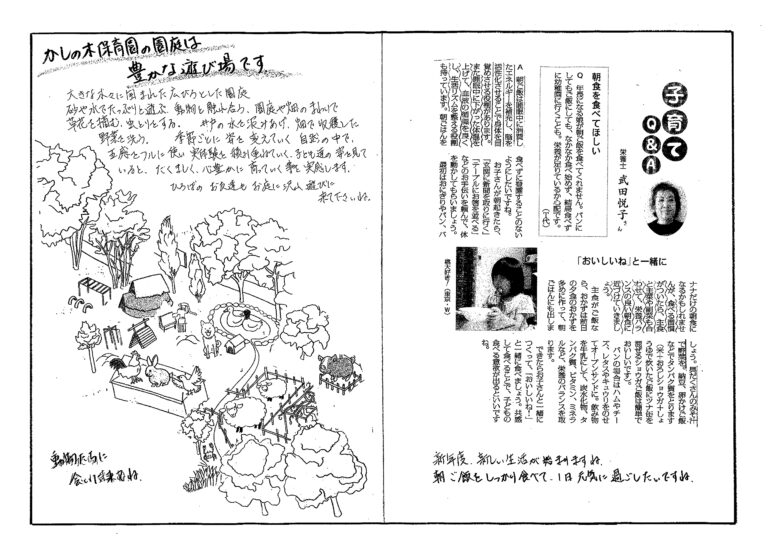 かしの木保育園の園庭は
豊かな遊び場です
大きな木々に囲まれた広びろとした園庭
砂や水でたっぷりと遊ぶ 動物と触れ合う、園庭や畑のまわりで
草花を摘む、虫とりをする。 井戸の水を汲みあげ、畑で収穫した
野菜を洗う。 季節ごとに 姿を変えていく 自然の中で、
五感をフルに使い 実体験を積み重ねていく、子ども達の姿を見て
いると、たくましく、心豊かに 育っていく事を実感します。
ひろばの お友達も お庭に 沢山 遊びに
来て下さいね。
動物広場に
会いに来てね。
子育て
Q&A
栄養士 武田悦子さん
朝食を食べてほしい
Q 年長になる娘が朝ご飯を食べてくれません。パンに
してもご飯にしても、なかなか食べ始めず、結局食べず
に幼稚園に行くことも。栄養が足りているか心配です。
A 朝ご飯は睡眠中に消費し
たエネルギーを補充し、脳を
活性化させることで身体を目
覚めさせる役割があります。
また睡眠中に下がった体温を
上げて、血液の循環を良く
し、生活リズムを整える役割
も持っています。朝ごはんを
食べずに登園することのない
ようにしたいですね。
お子さんが朝起きたら、
「玄関に新聞を取りに行く」
「テーブルにお箸を並べる」
などのお手伝いを頼んで、体
を動かしてもらいましょう。
最初はおにぎりやパン、バ
「おいしいね」と一緒に
ナナだけの朝食に
なるかもしれませ
んが、食べる習慣
がついたら、主食
と主菜や副菜も合
わせて、栄養バラ
ンスの良い朝食に
近づけていきまし
ょう。
主食がご飯な
ら、おかずは前日
の夕食のおかずを
多めに作って、朝
ごはんにも出しま
しょう。具だくさんのみそ汁
で野菜を。納豆、卵かけご飯
などでタンパク質をとります
混ぜるショウガご飯は簡単で
おいしいです)。
パンの場合はハムやチー
ズ、レタスやキュウリをのせ
てオープンサンドに。飲み物
を牛乳にして、炭水化物、タ
ンパク質、ビタミン、ミネラ
ルなど、栄養のバランスを取
ります。
できたらお子さんと一緒に
つくって、「おいしいね!」
と一緒に食べましょう。共感
して食べることで、子どもの
食べる意欲が出るといいです
ね。
新年度、新しい生活が始まりますね。
朝ご飯をしっかり食べて、1日元気に過ごしたいですね。